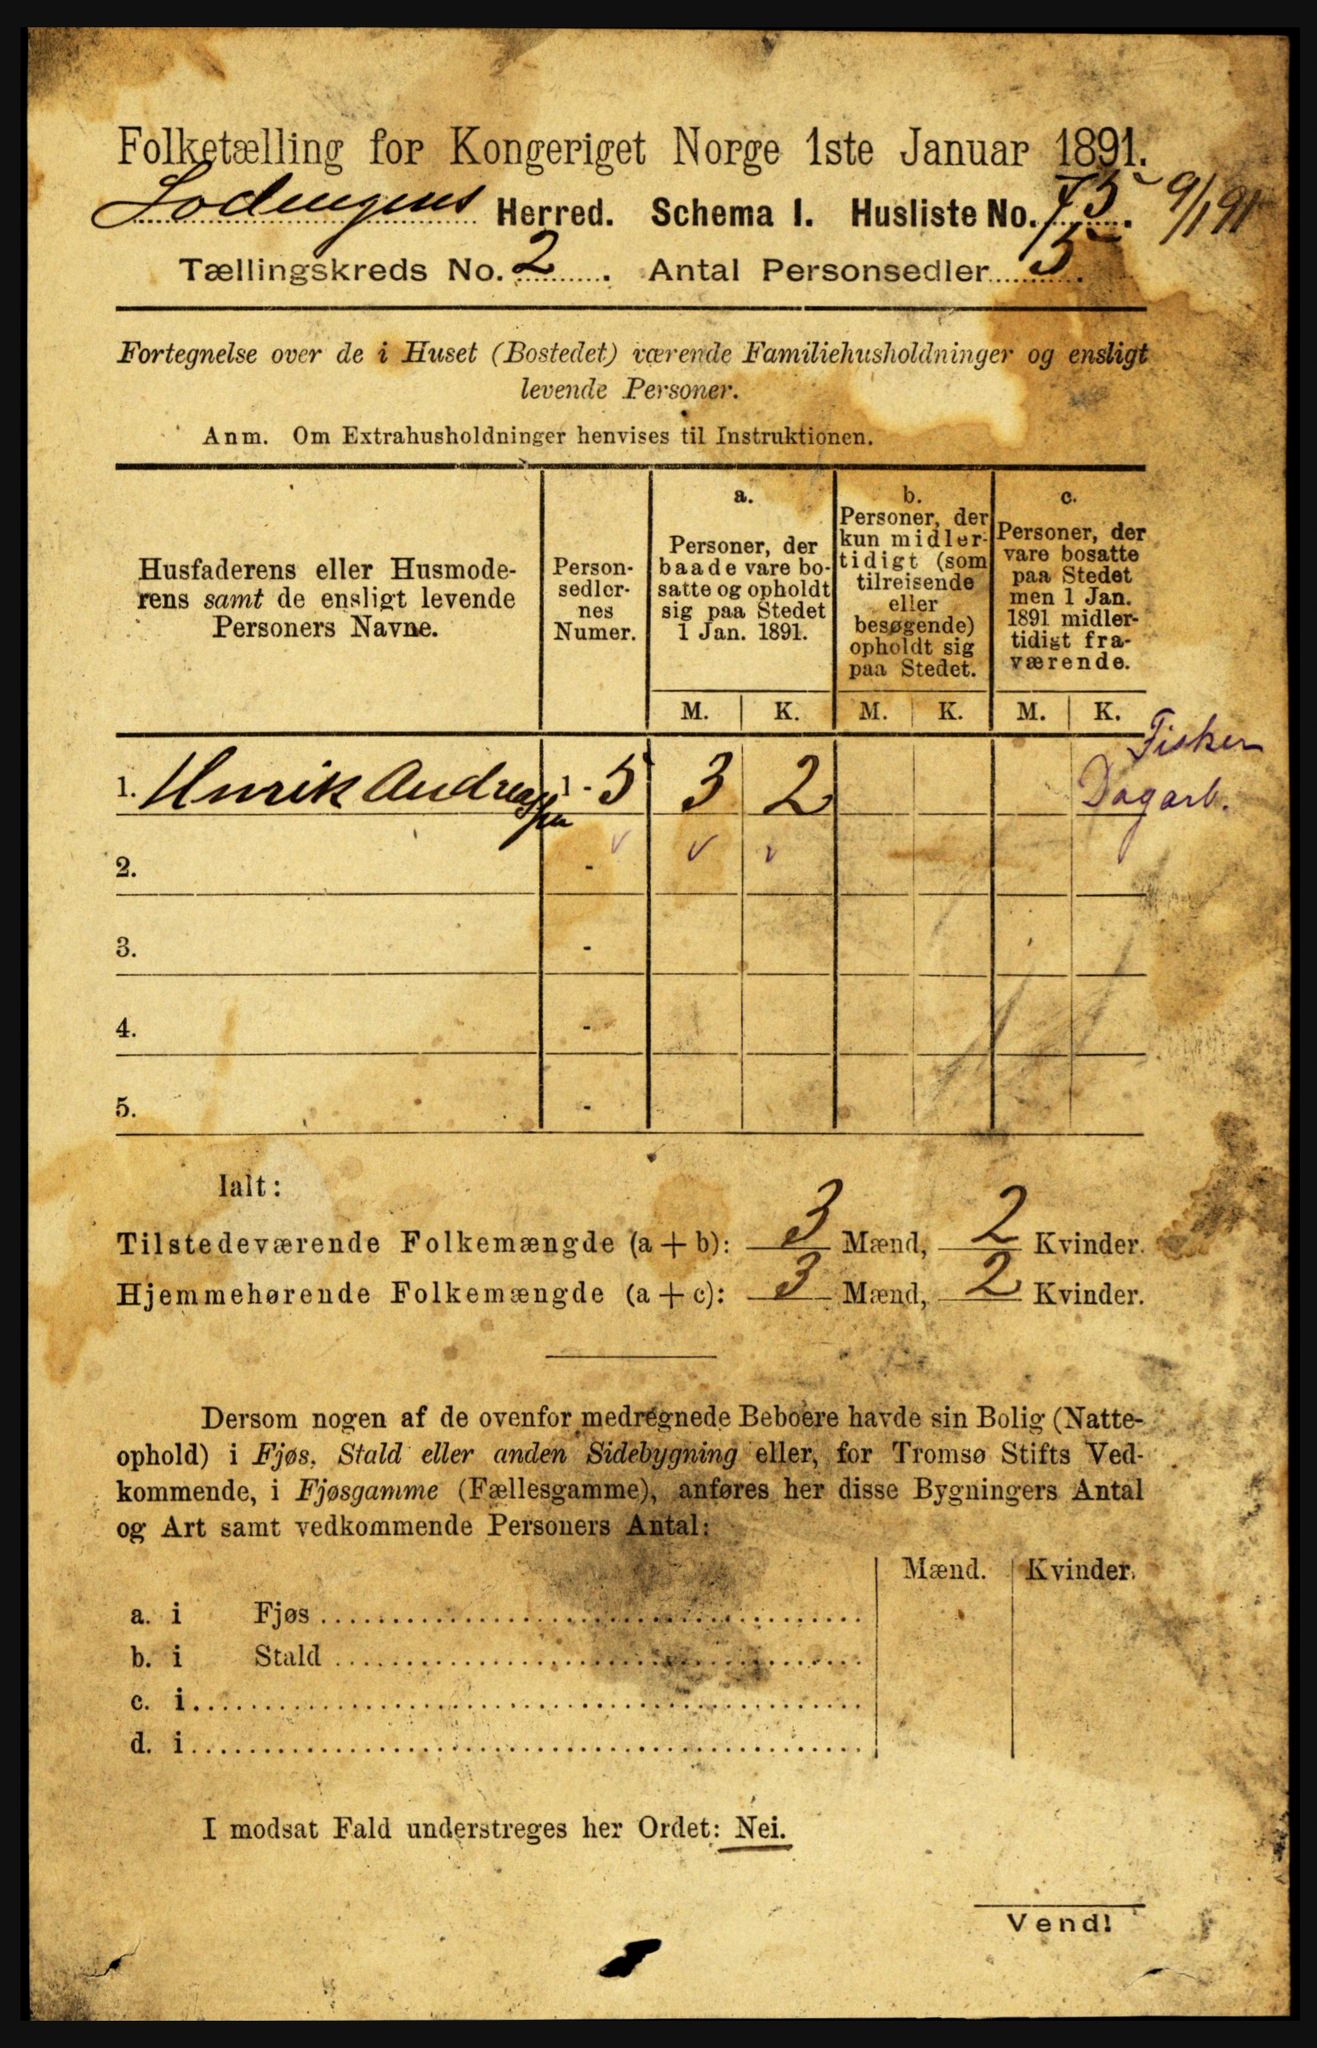 Folketælling for Kongeriget Norge 1ste Januar 1891.
Lodingens Herred. Schema 1. Husliste No. 75. 9/1 91
Tællingskreds No. 2. Antal Personsedler 5.
Fortegnelse over de i Huset (Bostedet) værende Familiehusholdninger og ensligt
levende Personer.
Anm. Om Extrahusholdninger henvises til Instruktionen.
Husfaderens eller Husmode-
rens samt de ensligt levende
Personers Navne.
Person-
sedler-
nes
Numer.
a.
Personer, der
baade vare bo-
satte og opholdt
sig paa Stedet
1 Jan. 1891.
b.
Personer, der
kun midler-
tidigt (som
tilreisende
eller
besøgende)
opholdt sig
paa Stedet.
c.
Personer, der
vare bosatte
paa Stedet
men 1 Jan.
1891 midler-
tidigt fra-
værende.
M. K. M. K. M. K.
1. Henrik Andreassen 1 - 5 3 2 Fisker
Dagarb.
2. -
3. -
4. -
5. -
Ialt:
Tilstedeværende Folkemængde (a + b): 3 Mænd, 2 Kvinder.
Hjemmehørende Folkemængde (a + c): 3 Mænd, 2 Kvinder.
Dersom nogen af de ovenfor medregnede Beboere havde sin Bolig (Natte-
ophold) i Fjøs, Stald eller anden Sidebygning eller, for Tromsø Stifts Ved-
kommende, i Fjøsgamme (Fællesgamme), anføres her disse Bygningers Antal
og Art samt vedkommende Personers Antal:
Mænd. Kvinder.
a. i Fjøs
b. i Stald
c. i
d. i
I modsat Fald understreges her Ordet: Nei.
Vend!